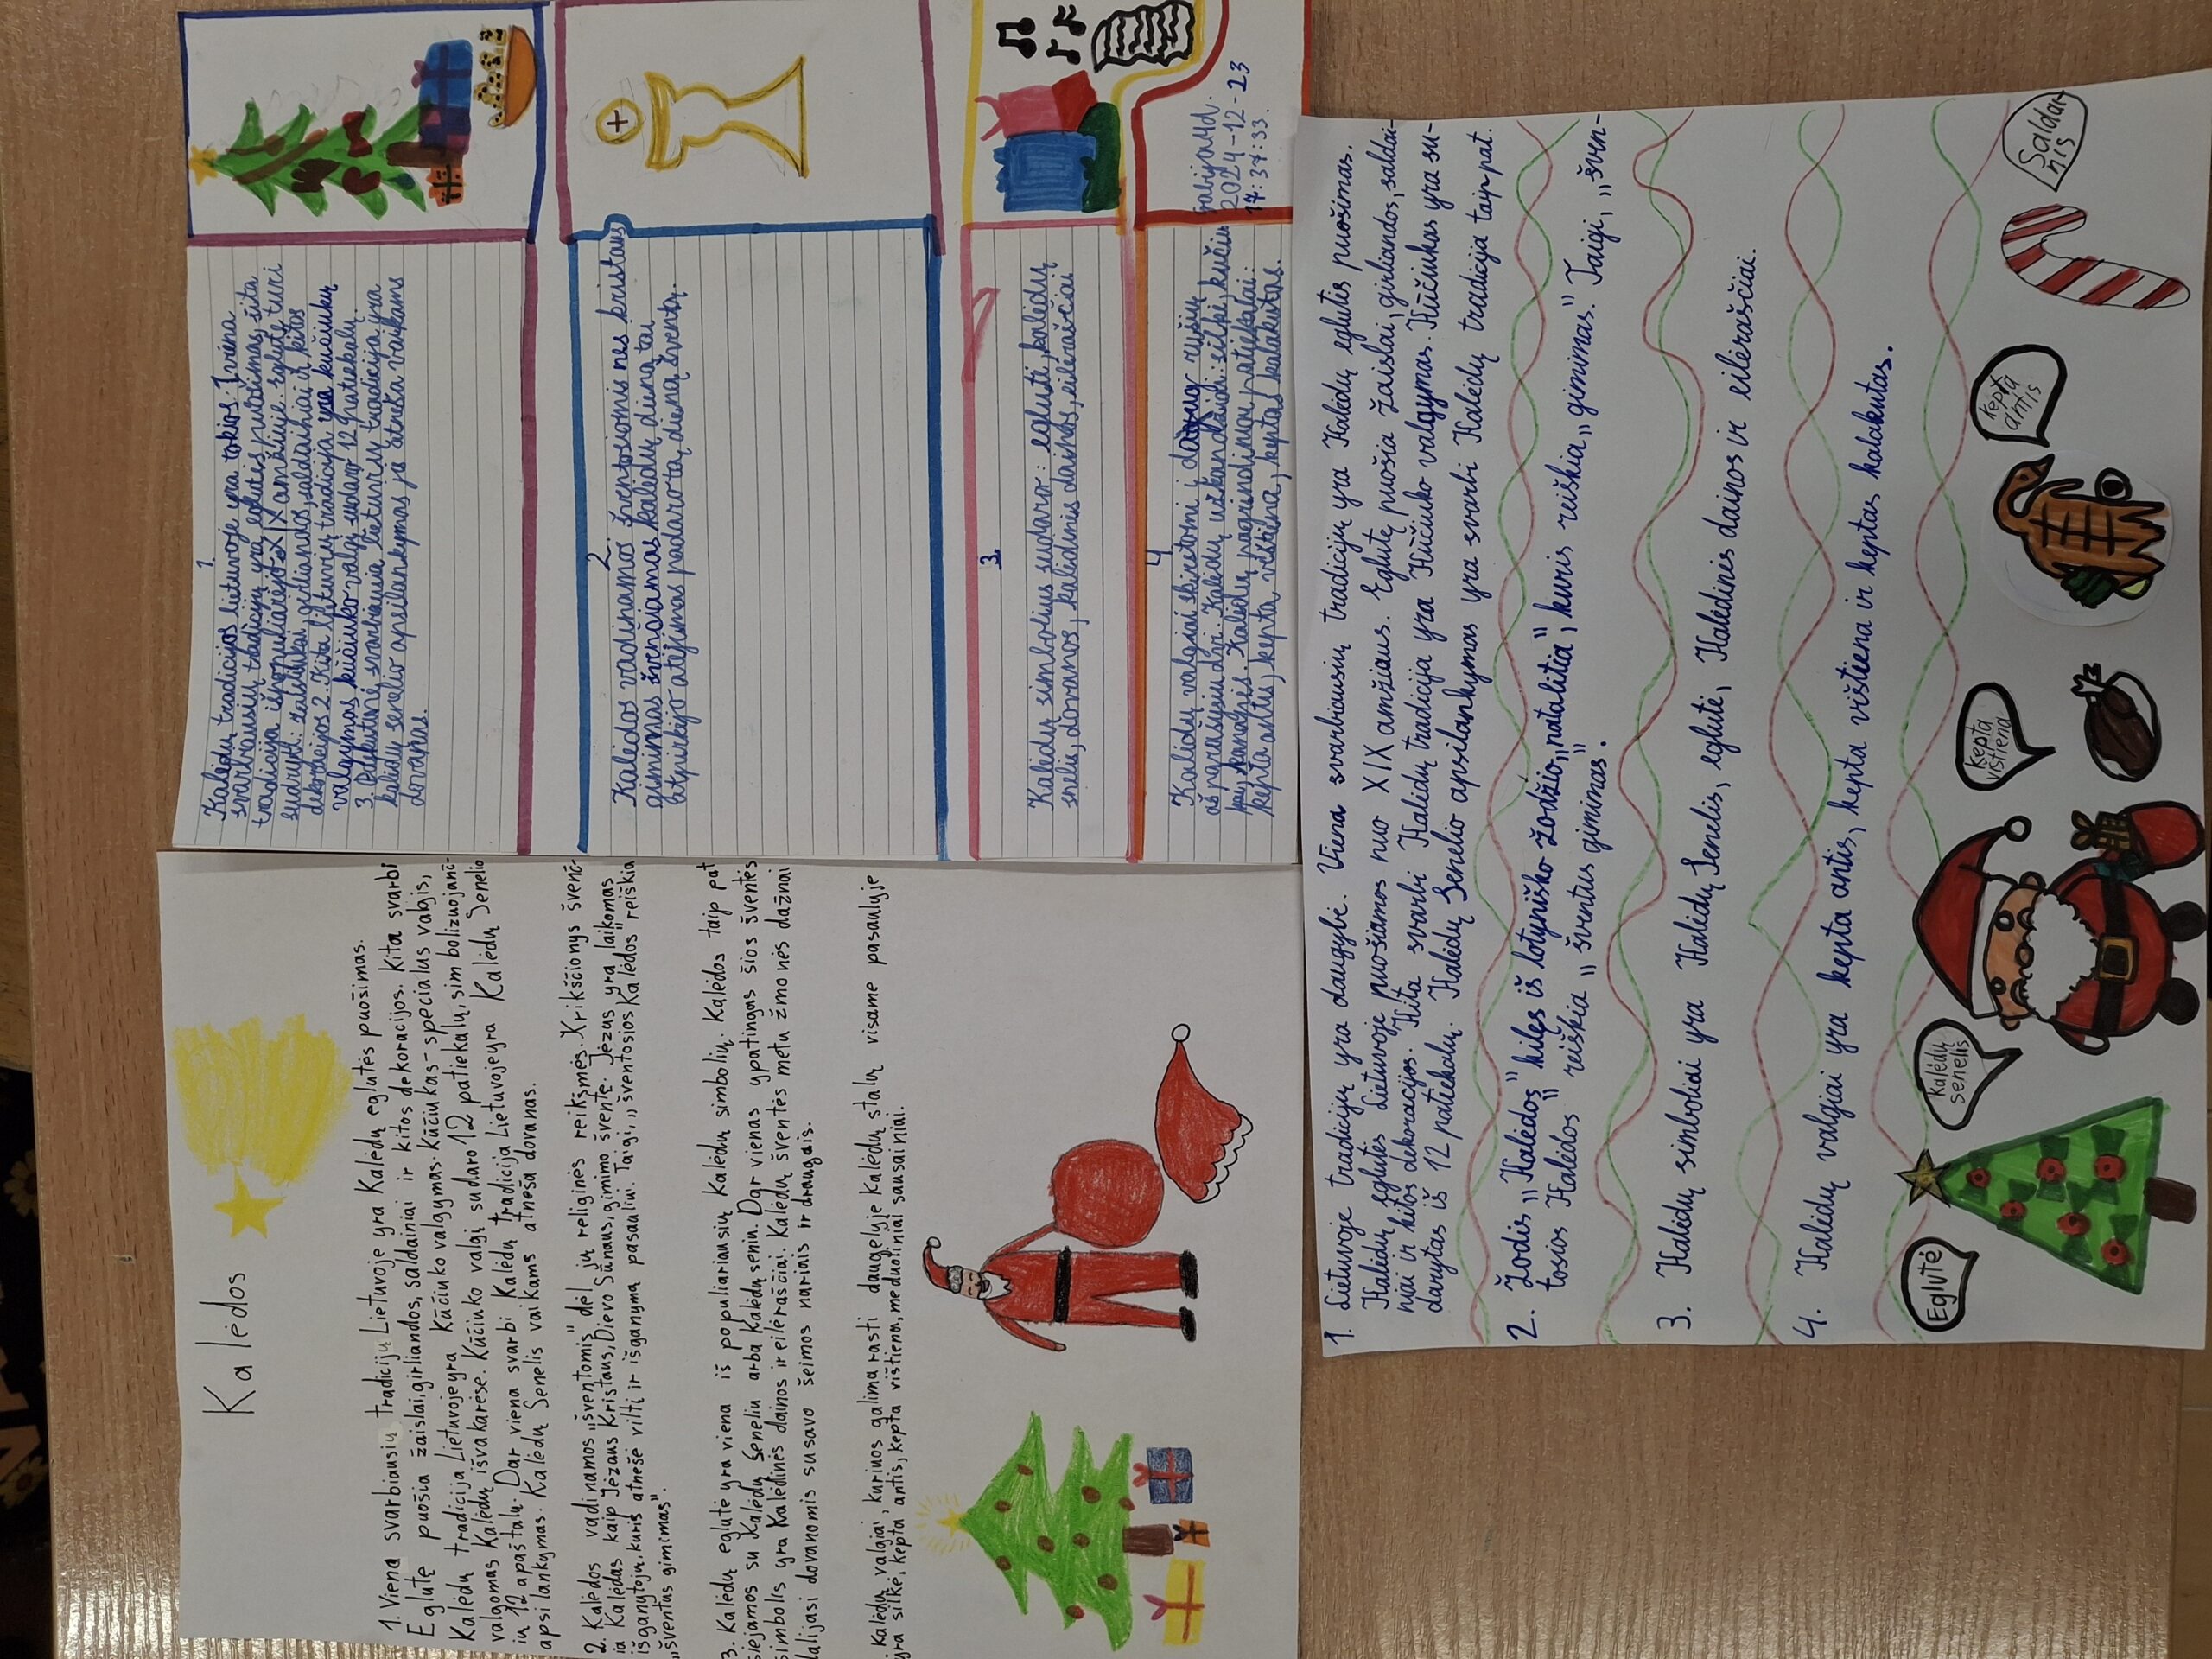 Kalėdos
1. Viena svarbiausių tradicijų Lietuvoje yra Kalėdų eglutės puošimas.
Eglutę puošia žaislai, girliandos, saldainiai ir kitos dekoracijos. Kita svarbi
Kalėdų tradicija Lietuvoje yra Kūčiuko valgymas. Kūčiukas - specialus valgis,
valgomas Kalėdų išvakarėse. Kūčiuko valgį sudaro 12 patiekalų, simbolizuojanč-
ių 12 apaštalų. Dar viena svarbi Kalėdų tradicija Lietuvoje yra Kalėdų Senelio
apsilankymas. Kalėdų Senelis vaikams atneša dovanas.
2. Kalėdos vadinamos „šventomis" dėl jų religinės reikšmės. Krikščionys švenč-
ia Kalėdas kaip Jėzaus Kristaus, Dievo Sūnaus, gimimo šventę. Jėzus yra laikomas
išganytoju, kuris atnešė viltį ir išganymą pasauliui. Taigi, „šventosios Kalėdos" reiškia
„šventas gimimas".
3. Kalėdų eglutė yra viena iš populiariausių Kalėdų simbolių. Kalėdos taip pat
siejamos su Kalėdų Seneliu arba Kalėdų seniu. Dar vienas ypatingas šios šventės
simbolis yra Kalėdinės dainos ir eilėraščiai. Kalėdų šventės metu žmonės dažnai
dalijasi dovanomis su savo šeimos nariais ir draugais.
Kalėdų valgiai, kuriuos galima rasti daugelyje Kalėdų stalų visame pasaulyje
yra silkė, kepta antis, kepta vištiena, meduoliniai sausainiai.
1
Kalėdų tradicijos lietuvoje yra tokios: 1 viena
svarbiausių tradicijų yra eglutės puošimas, šita
tradicija išpopuliarėjo XIX amžiuje. eglutę turi
sudaryti: žaisliukai, girliandos, saldainiai ir kitos
dekoracijos 2. Kita lietuvių tradicija yra kūčiukų
valgymas kūčiuko valgį sudaro 12 patiekalų.
3. Paskutinė svarbiausia lietuvių tradicija yra
kalėdų senelio apsilankymas jo atneka vaikams
dovanas.
2
Kalėdos vadinamos šventosiomis nes kristaus
gimimas švenčiamas kalėdų dieną tai
atpirkėjo atėjimas padarotą, dieną šventą.
3
Kalėdų simbolius sudaro: eglutė, kalėdų
senelis, dovanos, kalėdinės dainos, eilėraščiai
4
Kalėdų valgiai skirstomi į daug rūšių
aš parašysiu dvi: Kalėdų užkandžiai: silkė, kučiu
kai, kanapės. Kalėdų pagrindiniai patiekalai:
kepta antis, kepta vištiena, keptas kalakutas.
2024-12-23
17:37:33.
1. Lietuvoje tradicijų yra daugybė. Viena svarbiausių tradicijų yra Kalėdų eglutės puošimas.
Kalėdų eglutės Lietuvoje puošiamos nuo XIX amžiaus. Eglutę puošia žaislai, girliandos, saldai-
niai ir kitos dekoracijos. Kita svarbi Kalėdų tradicija yra Kūčiuko valgymas. Kūčiukas yra su-
darytas iš 12 patiekalų. Kalėdų Senelio apsilankymas yra svarbi Kalėdų tradicija taip pat.
2. Žodis „Kalėdos" kilęs iš lotyniško žodžio „natalitia", kuris reiškia „gimimas". Taigi, „šven-
tosios Kalėdos" reiškia „šventus gimimas".
3. Kalėdų simboliai yra Kalėdų Senelis, eglutė, Kalėdinės dainos ir eilėraščiai.
4. Kalėdų valgiai yra kepta antis, kepta vištiena ir keptas kalakutas.
Eglutė
Kalėdų
senelis
Kepta
vištiena
Kepta
antis
Saldai-
nis